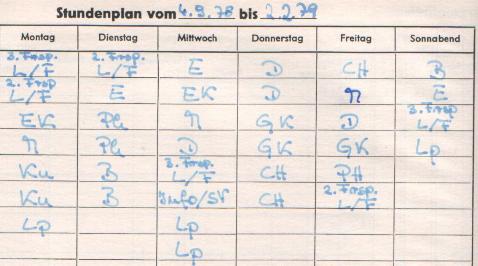 Stundenplan vom 4.9.78 bis 2.2.79
Montag Dienstag Mittwoch Donnerstag Freitag Sonnabend
3. Frsp. L/F 2. Frsp. L/F E D CH B
2. Frsp. L/F E EK D M E
EK Ph M GK D 3. Frsp L/F
M Ph D GK GK Lp
Ku B 3. Frsp. L/F CH PH
Ku B Info/SV CH 2. Frsp. L/F
Lp Lp
Lp